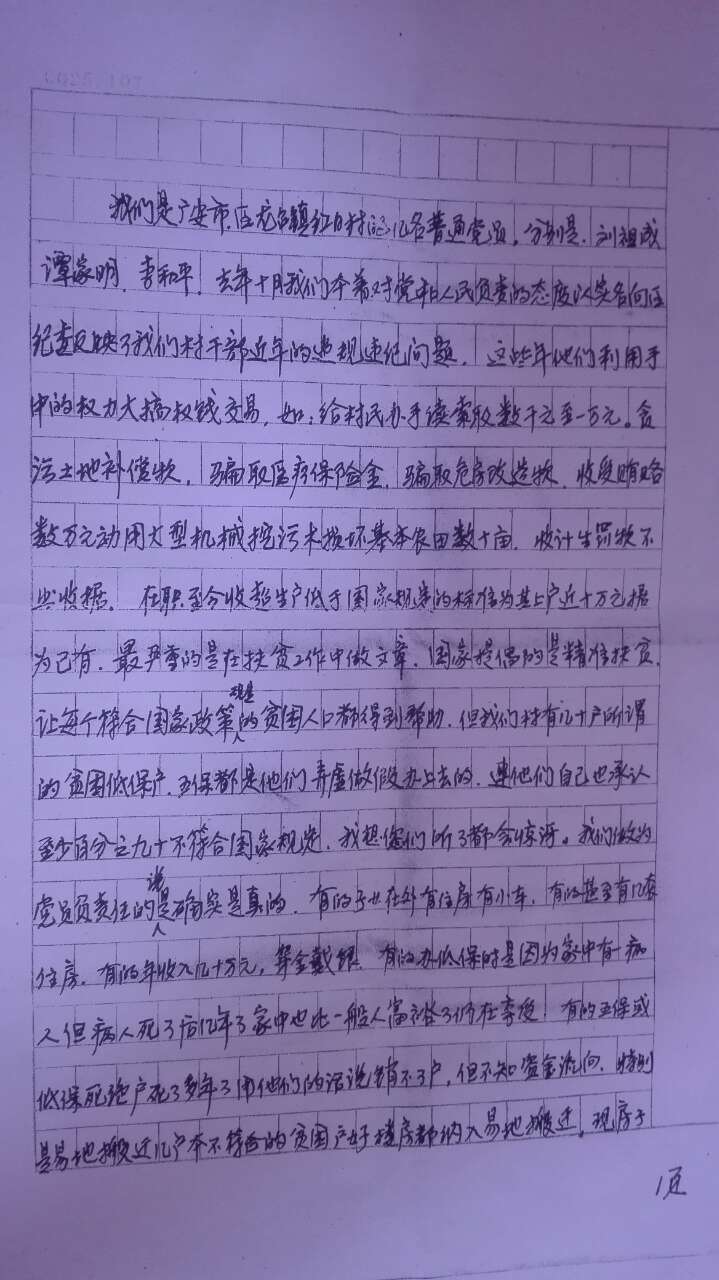 我们是广安市区龙台镇红日村的几名普通党员。分别是.刘祖成
谭家明.李和平.去年十月我们本着对党和人民负责的态度以实名向区
纪委反映了我们村干部近年的违规违纪问题.这些年他们利用手
中的权力大搞权钱交易,如:给村民办手续索取数千元至一万元。贪
污土地补偿款,骗取医疗保险金.骗取危房改造款.收受贿赂
数万元动用大型机械挖污木损坏基本农田数十亩.收计生罚款不
出收据.在职至今收超生户低于国家规定的标准为其上户近十万元据
为己有.最严重的是在扶贫工作中做文章.国家提倡的是精准扶贫.
让每个符合国家政策的贫困人口都得到帮助.但我们村有几十户所谓
的贫困低保户.五保都是他们弄虚做假办上去的.连他们自己也承认
至少百分之九十不符合国家规定.我想您们听了都会惊讶。我们做为
党员负责任的说是确实是真的.有的子女在外有住房有小车.有的甚至有几套
住房.有的年收入几十万元,穿金戴银.有的办低保时是因为家中有一病
人但病人死了后几年了家中也比一般人富裕了仍在享受.有的五保或
低保死绝户死了多年了用他们的话说销不了户,但不知资金流向.特别
是易地搬迁几户本不符合的贫困户好楼房都纳入易地搬迁.现房子
1页